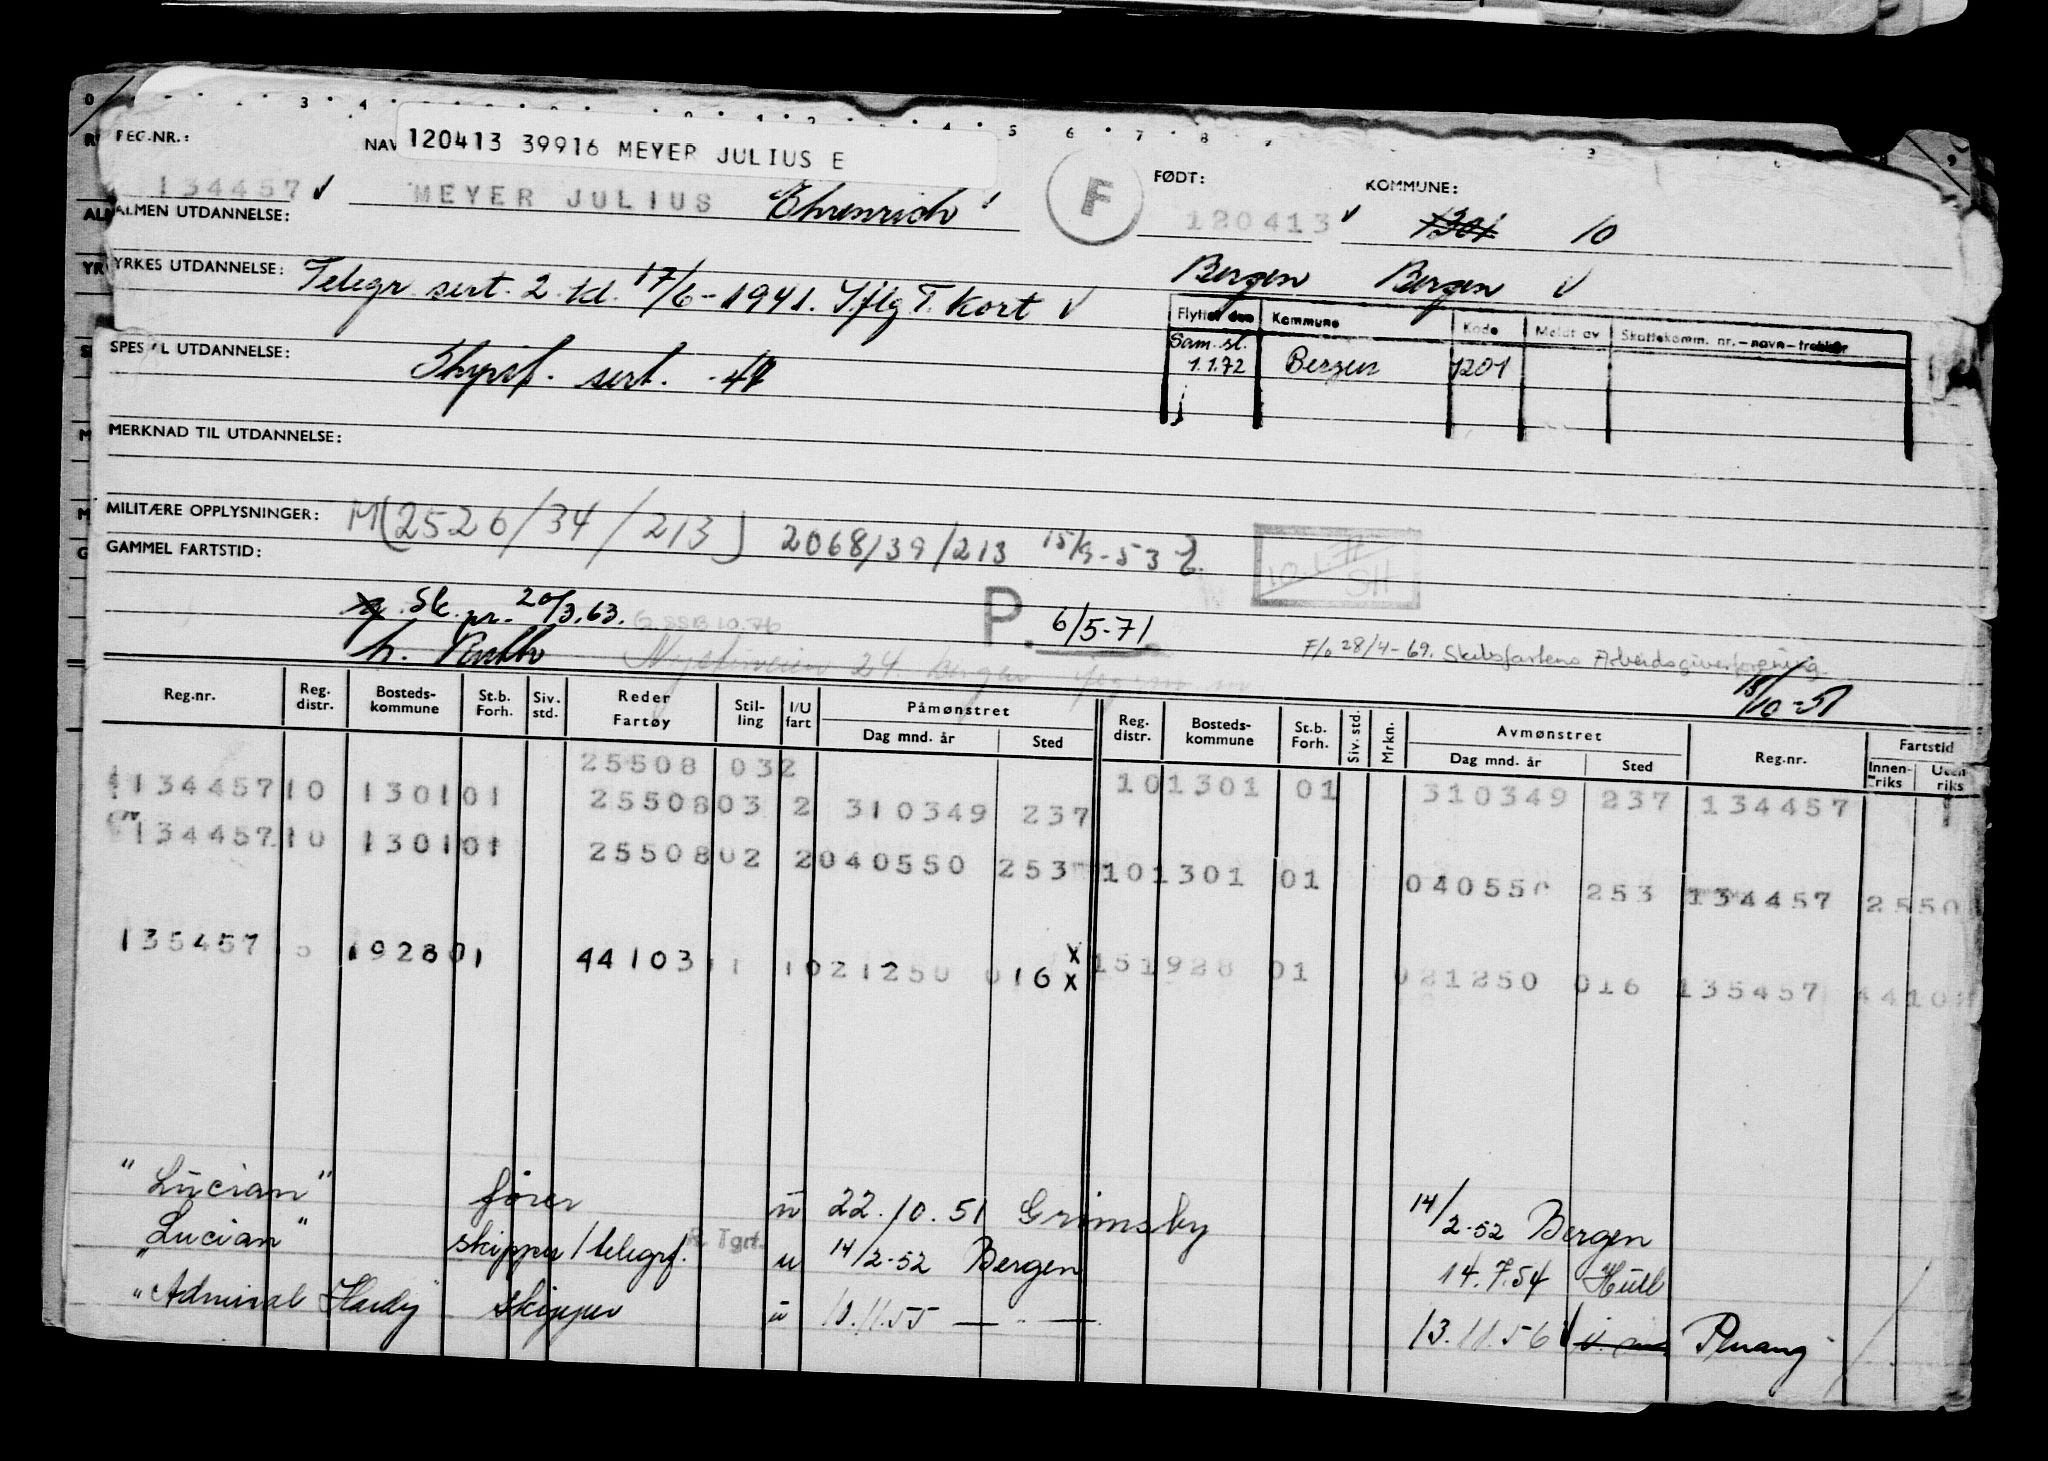 REG.NR.:
120413 39916 MEYER JULIUS E
FØDT:
KOMMUNE:
134457 v MEYER JULIUS Ehrenrich F 120413 v 1301 10
ALMEN UTDANNELSE:
Bergen Bergen v
YRKES UTDANNELSE: Telegr. sert. 2. kl. 17/6-1941. I flg T. kort v
Flyttet den Kommune Kode Meldt av Skattekomm. nr.-navn-trekkår
Sam.sl.
1.1.72 Bergen 1201
SPES L UTDANNELSE: sert. -47
MERKNAD TIL UTDANNELSE:
MILITÆRE OPPLYSNINGER: M(2526/34/213) 2068/39/213 15/9-53
GAMMEL FARTSTID:
10.1.71
SH
Sk. pr. 20/3.63. P. 6/5-71
F/o 28/4-69. Skibsfartens Arbeidsgiverforening
24. Bergen
15/10-51
Reg.nr. Reg. distr. Bosteds-kommune St.b. Forh. Siv. std. Reder Fartøy Stil-ling I/U fart Påmønstret Dag mnd. år Sted Reg. distr. Bosteds-kommune St.b. Forh. Siv. std. Mrkn. Avmønstret Dag mnd. år Sted Reg.nr. Fartstid Innen-riks Uten riks
25508 032
134457 10 1301 01 25508 03 2 310349 237 10 1301 01 310349 237 134457
134457 10 1301 01 25508 02 2 040550 253 10 1301 01 040550 253 134457 2550
135457 1928 01 44103 11 1 021250 016 x 15 1928 01 021250 016 135457 4410
x
"Lucian" fører u 22.10.51 Grimsby 14/2-52 Bergen
"Lucian" skipper/telegrf. R. Tgrf. u 14/2-52 Bergen 14.7.54 Hull
"Admiral Hardy" skipper u 10.11.55 — " — 13.11.56